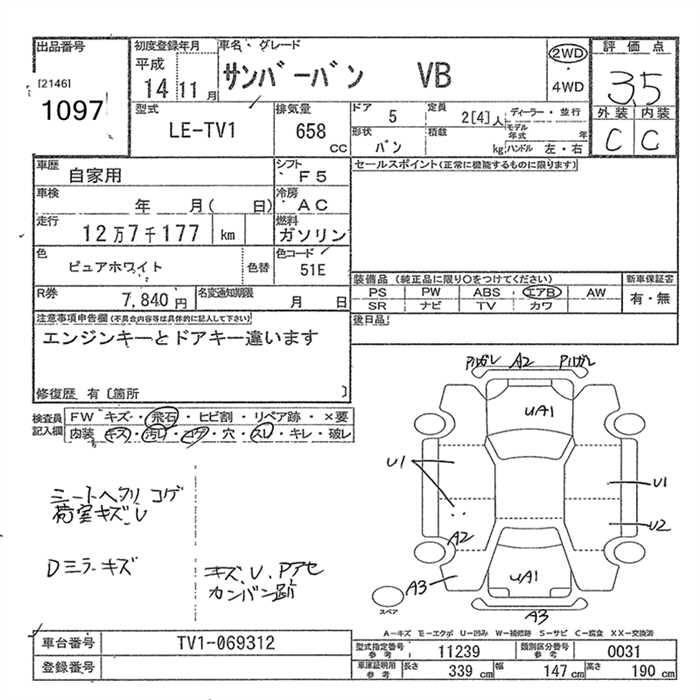 出品番号
[2146]
1097
初度登録年月
平成
14 11 月
車名・グレード
サンバーバン VB
2WD
・
4WD
評価点
3.5
外装 内装
C C
型式
LE-TV1
排気量
658
CC
ドア 5
定員 2[4]人
ディーラー・並行
形状 バン
積載 kg
モデル年式 年
ハンドル 左・右
車歴 自家用
シフト F5
セールスポイント(正常に機能するものに限ります)
車検 年 月( 日)
冷房 AC
走行 12万7千177 km
燃料 ガソリン
色 ピュアホワイト 色替
色コード 51E
装備品 (純正品に限り○をつけてください)
新車保証書
PS PW ABS エアB AW
有・無
SR ナビ TV カワ
R券 7,840円
名変通知期限 月 日
後日品
注意事項申告欄 (不具合内容等は具体的に記入して下さい)
エンジンキーとドアキー違います
修復歴 有〔箇所 〕
検査員記入欄
FW キズ・飛石・ヒビ割・リペア跡・×要
内装 キズ・汚れ・コゲ・穴・スレ・キレ・破レ
シートヘタリ コゲ
荷室キズ、U
Dミラーキズ
キズ、U、Pアセ
カンバン跡
A2
UA1
U1
U1
U2
A2
UA1
A3
A3
スペア
A-キズ E-エクボ U-凹み W-補修跡 S-サビ C-腐食 XX-交換済
車台番号 TV1-069312
登録番号
型式指定番号 参考 11239
類別区分番号 参考 0031
車庫証明用 参考 長さ 339 cm 幅 147 cm 高さ 190 cm